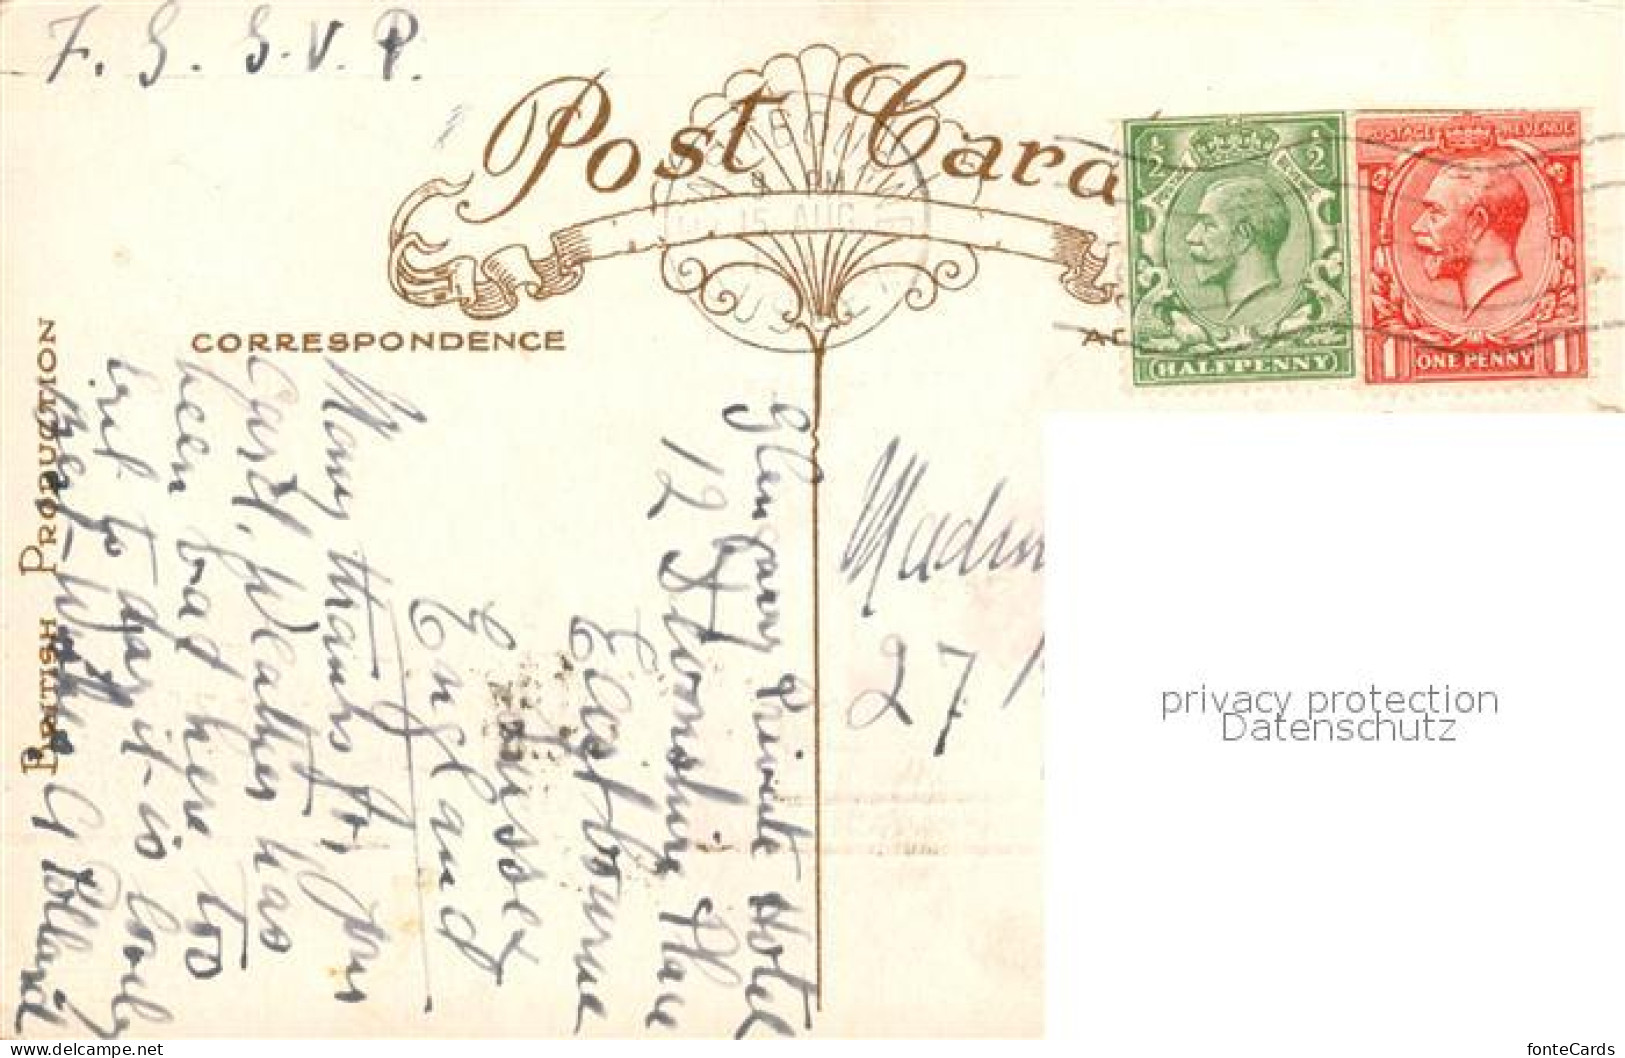 F. S. S. V. P.
Post Card
CORRESPONDENCE
BRITISH PRODUCTION
½ ½
HALFPENNY
POSTAGE REVENUE
1 ONE PENNY 1
PM
15 AUG
Glengarry Private Hotel
12 Devonshire Place
Eastbourne
Sussex
England
Many thanks for your
card. Weather has
been bad here too
but to day it is lovely
Pollard
27
privacy protection
Datenschutz
www.delcampe.net
fonteCards